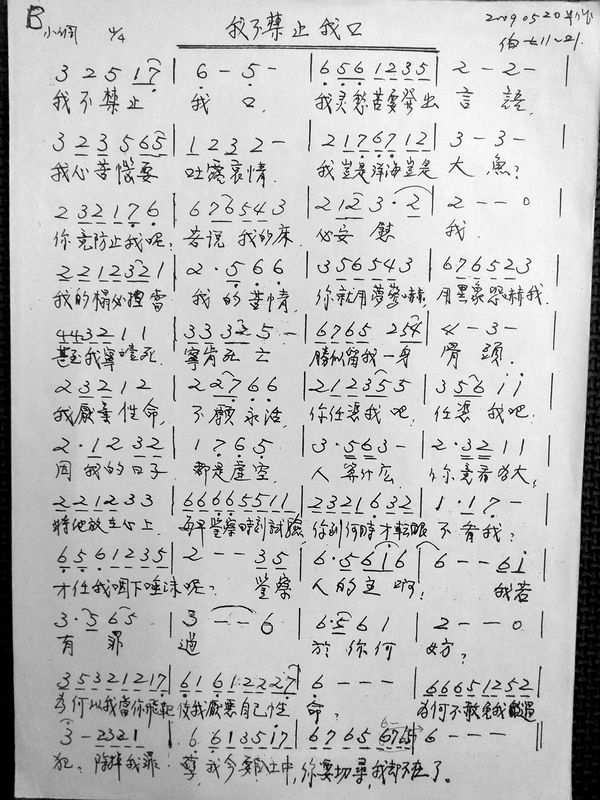 B 小调 4/4 我不禁止我口 20090520
伯七11~21.
3 2 5 1 7 | 6 - 5 - | 6 5 6 1 2 3 5 | 2 - 2 - |
我不禁止 我 口, 我灵愁苦要發出 言 語,
3 2 3 5 6 5 | 1 2 3 2 - | 2 1 7 6 7 1 2 | 3 - 3 - |
我心苦惱要 吐露哀情. 我豈是洋海豈是 大 魚?
2 3 2 1 7 6 | 6 7 6 5 4 3 | 2 1 2 3 · 2 | 2 - - 0
你竟防止我呢? 若说 我的床 必安 慰 我.
2 2 1 2 3 2 1 | 2 · 5 6 6 | 3 5 6 5 4 3 | 6 7 6 5 2 3 |
我的榻必擔當 我 的苦情, 你就用夢驚嚇, 用異象恐嚇我.
4 4 3 2 1 1 | 3 3 3 2 5 - | 6 7 6 5 2 5 4 | 4 - 3 - |
甚至我寧噎死, 寧肯死亡 勝似留我一身 骨 頭.
2 3 2 1 2 | 2 2 7 6 6 | 2 1 2 3 5 5 | 3 5 6 i i |
我厭棄性命, 不願永活, 你任憑我吧, 任憑 我吧.
2 · 1 2 3 2 | 1 7 6 5 | 3 · 5 6 3 - | 2 · 3 2 1 1 |
因 我的日子 都是虚空. 人 算什么 你竟看為大,
2 2 1 2 3 3 | 6 6 6 6 5 5 1 1 | 2 3 2 1 6 3 2 | 1 · 1 7 - |
將他放在心上, 每早鑒察時刻試驗, 你到何時才轉眼 不看我?
6 5 6 1 2 3 5 | 2 - - 3 5 | 6 · 5 6 i 6 | 6 - - 6 i |
才任我咽下唾沫呢? 鑒察 人的主啊! 我若
3 · 5 6 5 | 3 - - 6 | 6 · 5 6 1 | 2 - - 0 |
有 罪 過 於 你何 妨?
3 5 3 2 1 2 1 7 | 6 1 6 1 2 2 2 7 | 6 - - - | 6 6 6 5 1 2 5 2 |
為何以我當你箭靶 使我厭惡自己性 命? 為何不赦免我過
3 - 2 3 2 1 | 6 6 1 3 5 i 7 | 6 7 6 5 6 7 6 5 | 6 - - - ‖
犯? 除掉我罪 孽, 我今要臥土中, 你要切尋,我却不在了.